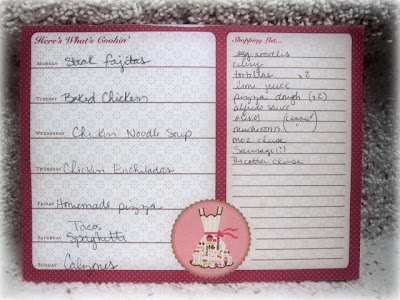 Here's What's Cookin'
MONDAY Steak fajitas
TUESDAY Baked Chicken
WEDNESDAY Chicken Noodle Soup
THURSDAY Chicken Enchiladas
FRIDAY Homemade pizza
Tacos
SATURDAY Spaghetti
SUNDAY Calzones
Shopping List...
egg noodles
celery
tortillas x2
lime juice
pizza dough (x2)
alfredo sauce
olives (canned)
mushrooms ( " )
moz cheese
Sausage(!)
Ricotta cheese